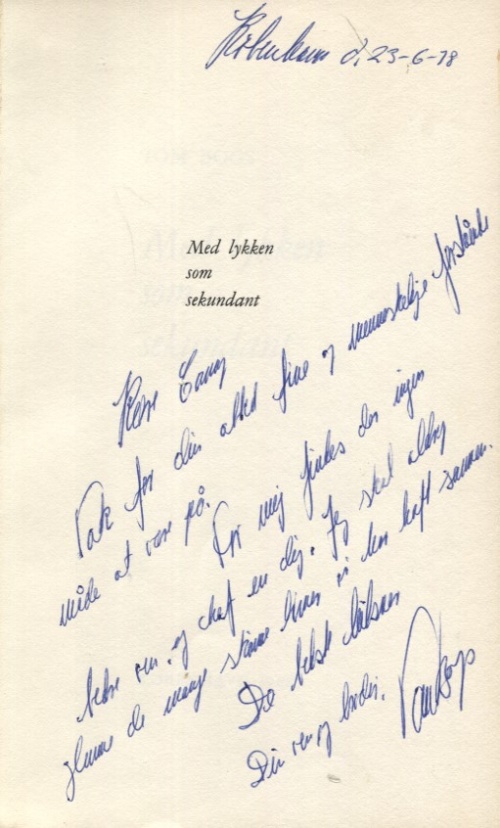 København d. 23-6-78
Med lykken
som
sekundant
Kære Conny
Tak for din altid fine og menneskelige
måde at være på.
For mig findes der ingen
bedre ven og chef en dig. Jeg skal aldrig
glemme de mange skønne timer vi har haft sammen.
De bedste hilsner
Din ven og broder.